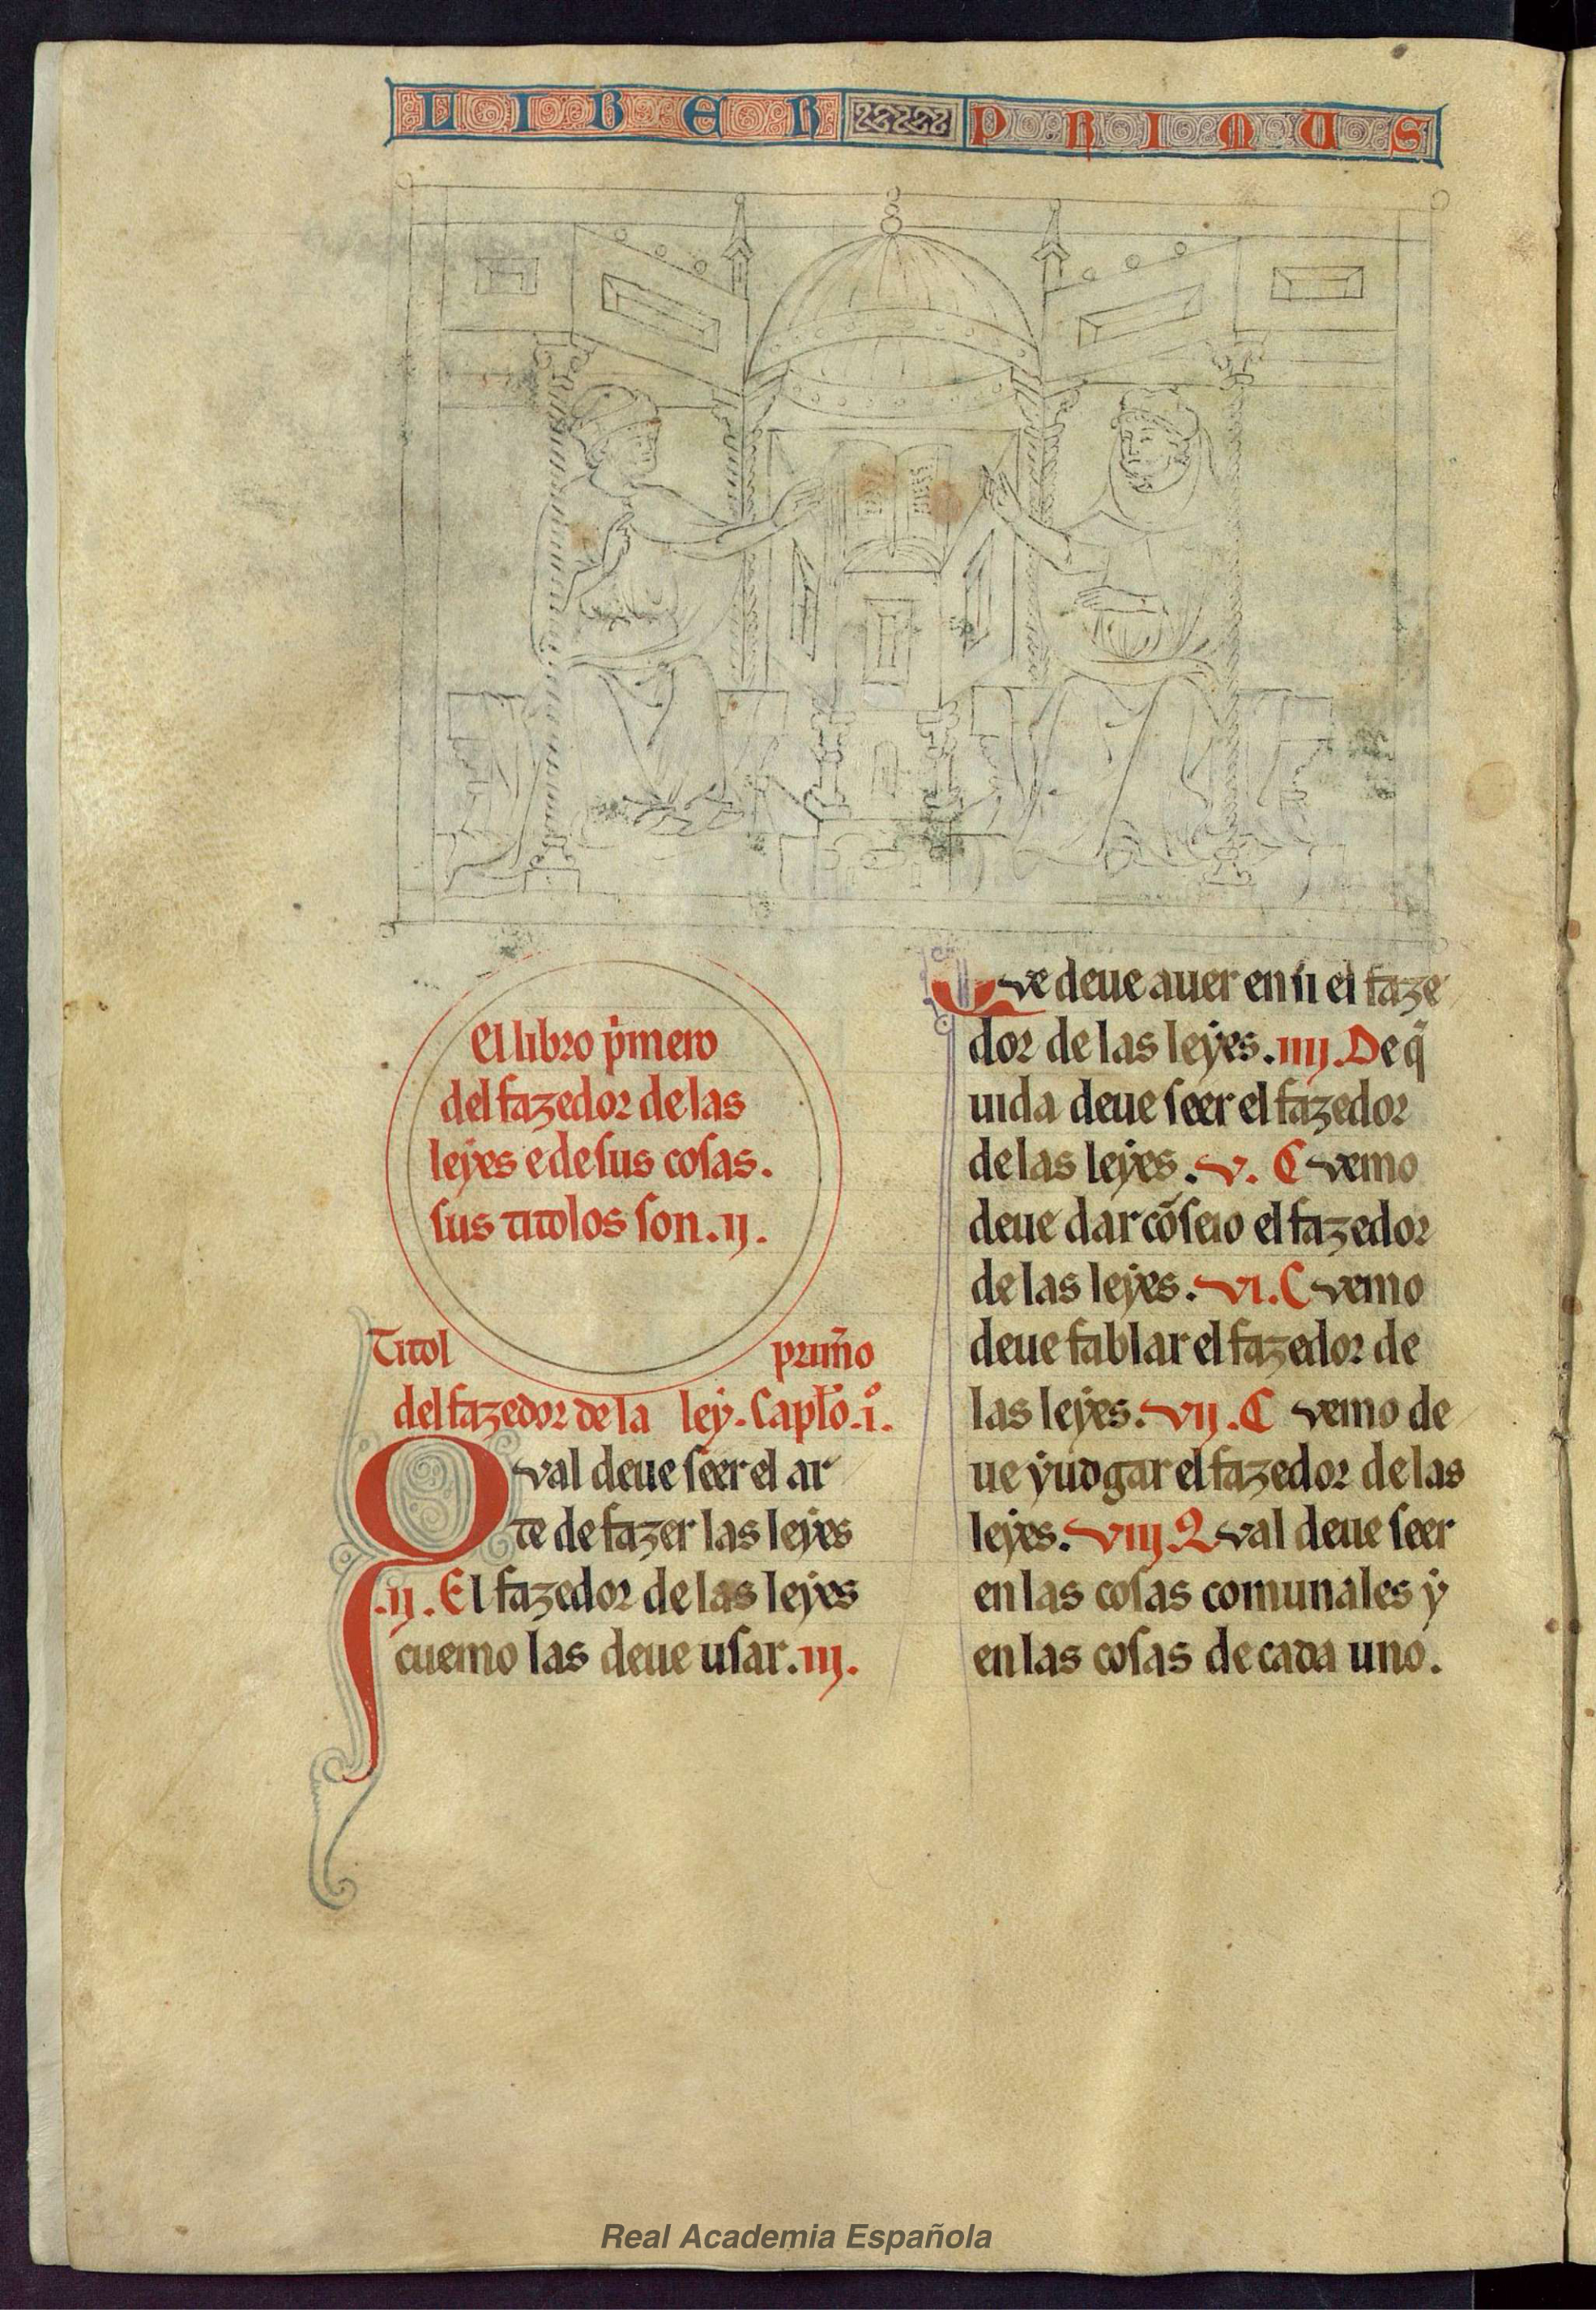 LIBER PRIMUS
El libro p̄mero
del fazedor de las
leẏes e de sus cosas.
sus titolos son .ij.
Titol prim̄o
del fazedor de la leẏ. Capl̄o .i.
Qval deue seer el ar
te de fazer las leẏes
.ij. El fazedor de las leẏes
cuemo las deue usar. iij.
Qve deue auer en si el faze
dor de las leẏes. iiij. De q̄
uida deue seer el fazedor
de las leẏes. v. Cvemo
deue dar cōseio el fazedor
de las leẏes. vi. Cvemo
deue fablar el fazedor de
las leẏes. vij. Cvemo de
ue ẏudgar el fazedor de las
leẏes. viij. Qval deue seer
en las cosas comunales ẏ
en las cosas de cada uno.
Real Academia Española